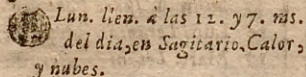 Lun. llen. à las 12. y 7. ms.
del dia, en Sagitario, Calor,
y nubes.